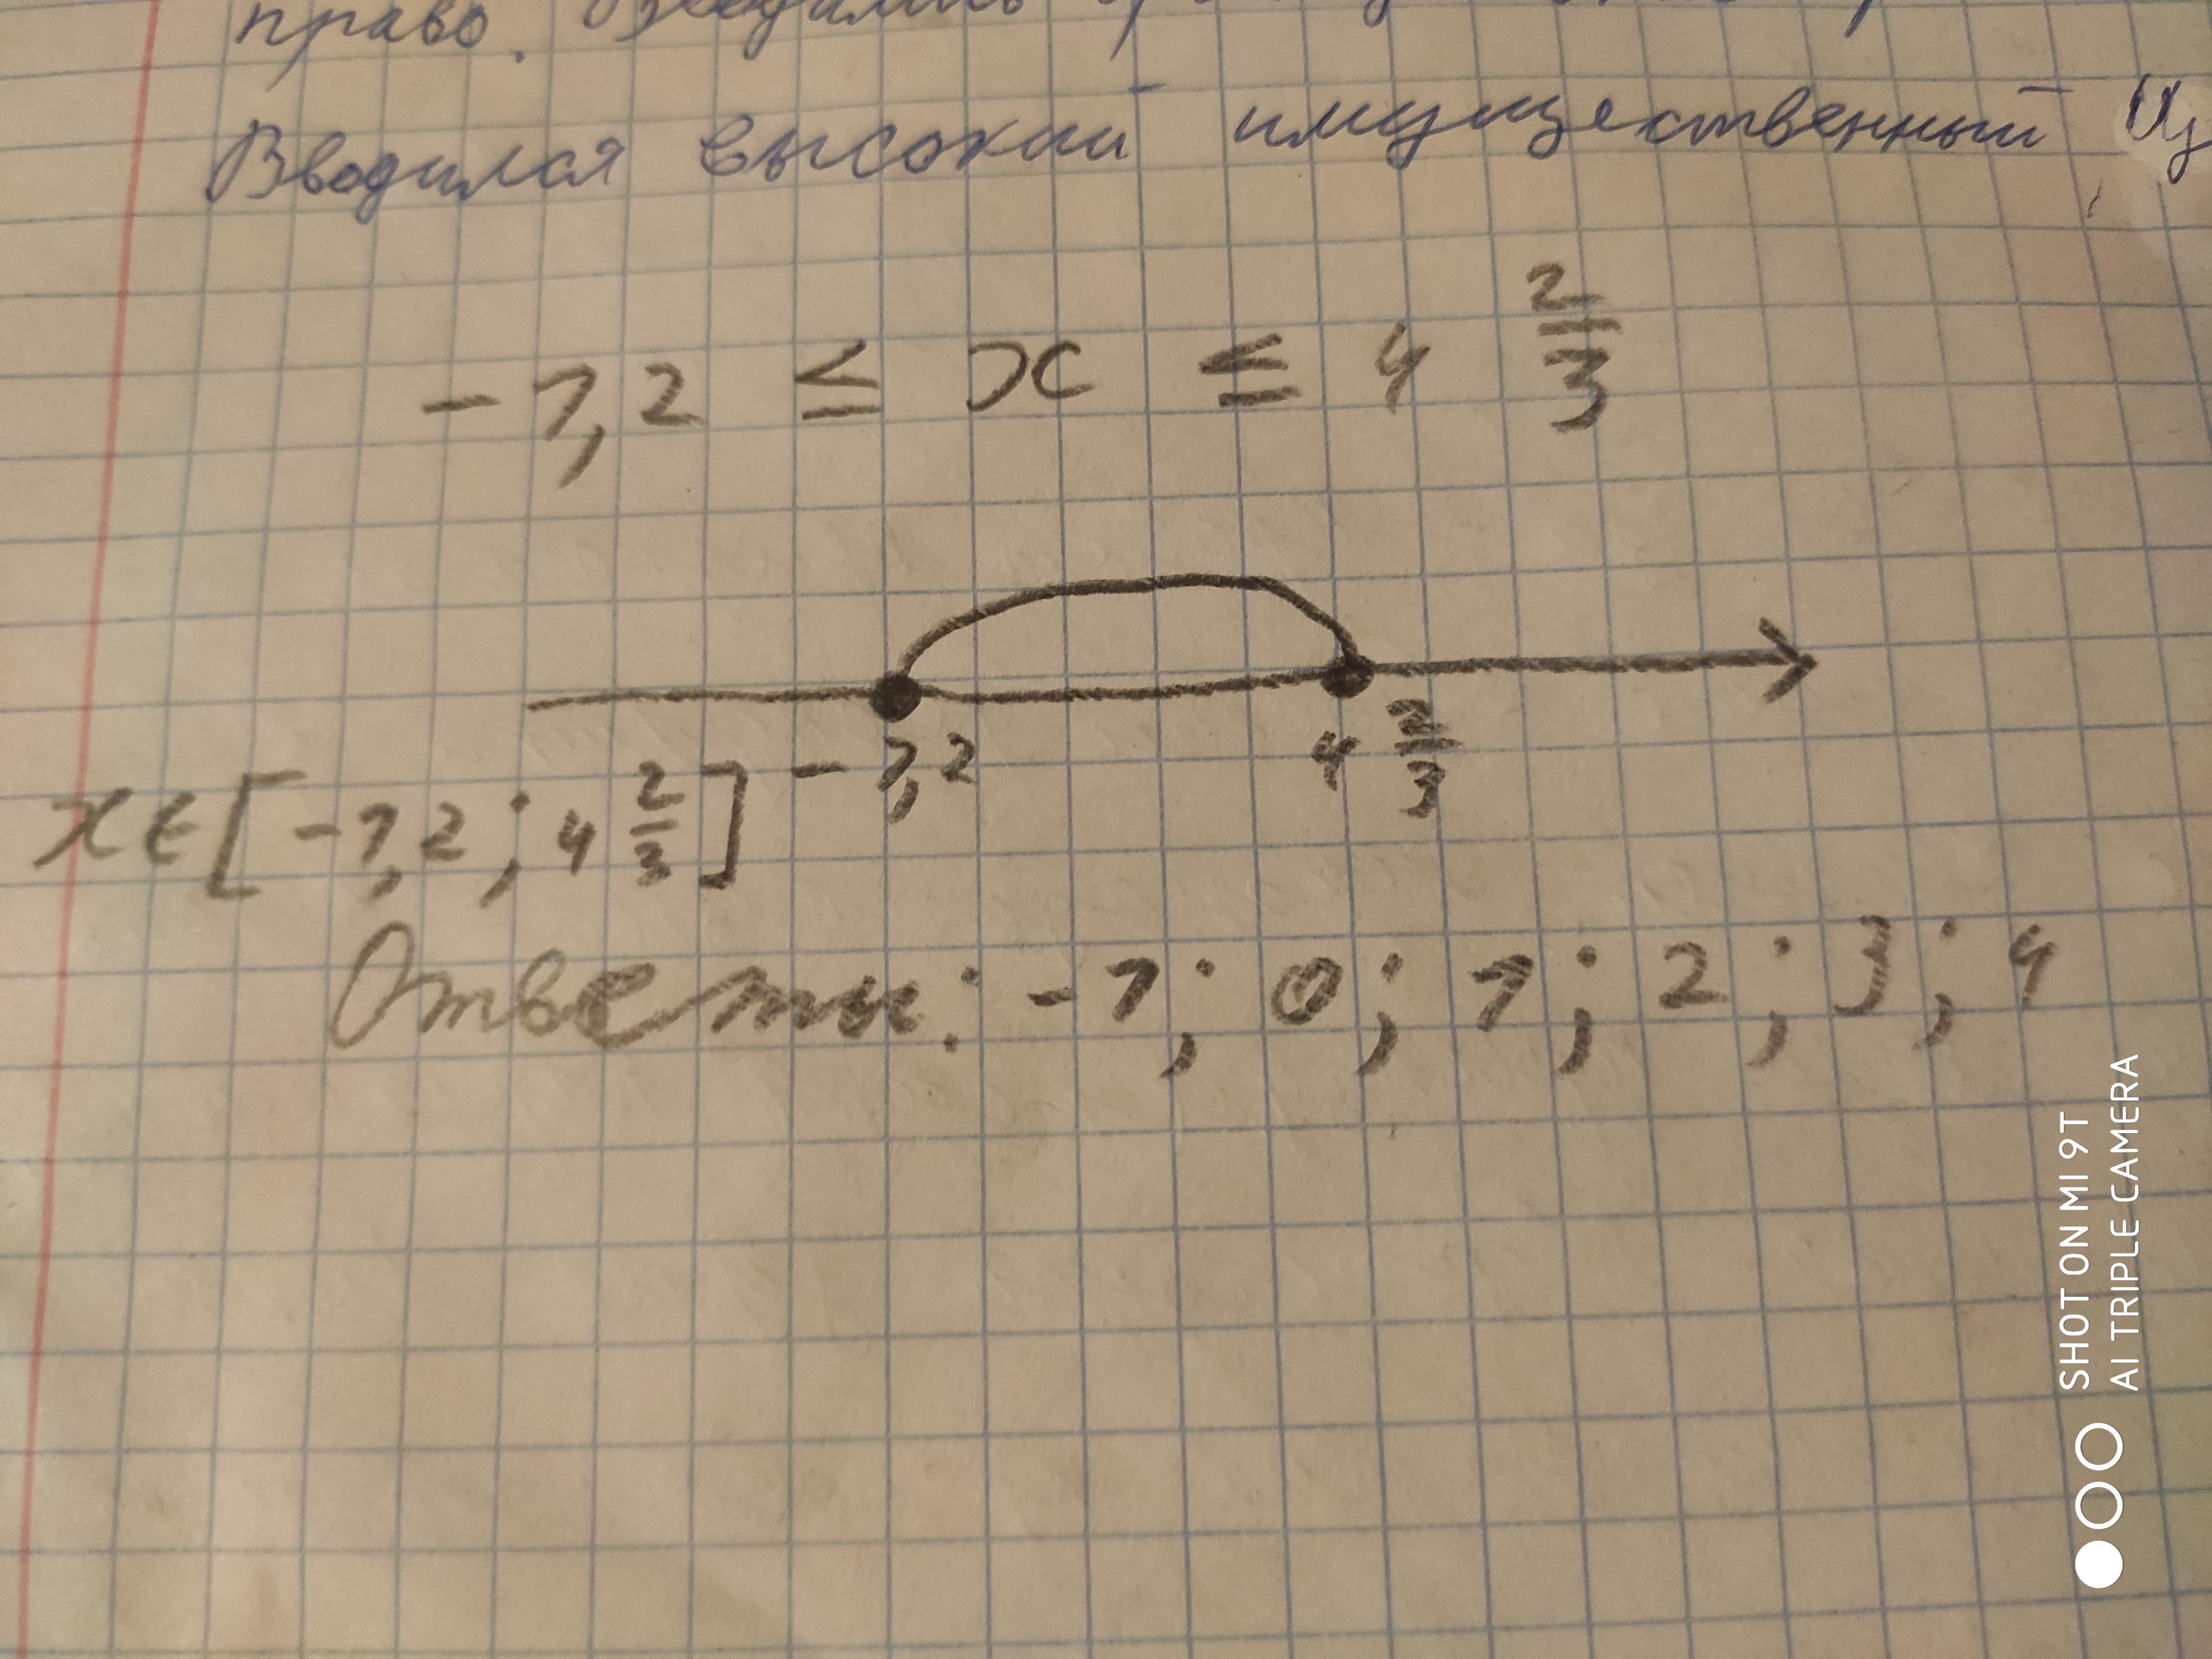 право.
Вводился высокий имущественный
-1,2 ≤ x ≤ 4 2/3
-1,2 4 2/3
x∈[-1,2; 4 2/3]
Ответы: -1; 0; 1; 2; 3; 4
SHOT ON MI 9T
AI TRIPLE CAMERA